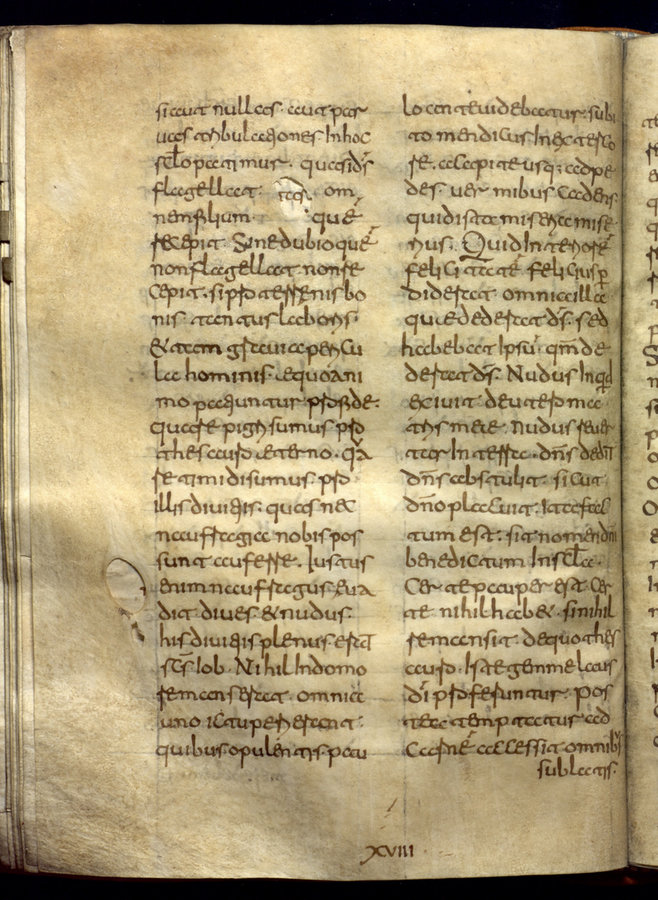 sicut nullas. aut par
uas tribulationes. In hoc
sclo patimur. quasi ds
flagellat. om
nem filium. que
recepit. Sine dubio que
non flagellat non re
cepit. si pro terrenis bo
nis. tantus labor.
& tam grauia pericu
la hominis. equo ani
mo patiuntur pro
quare pigri sumus pro
thesauro eterno. qua
re timidi sumus. pro
illis diuitiis. quas nec
naufragia nobis pos
sunt auferre. Iustus
enim naufragus eua
dit. diues & nudus.
his diuitiis plenus erat
scs Iob. Nihil In domo
remanserat. omnia
uno ictu perierant.
quibus opulentis. pau
lo ante uidebatur. subi
to mendicus In stercо
re. a capite usq; ad pe
des. uermibus
quid ista miseria mise
rius. Quid Interiore
felicitate felicius per
diderat omnia illa
que dederat ds. sed
habebat Ipsu. qui
derat ds. Nudus Inqd
exiui de utero ma
tris mee. nudus reuer
tar In terra. dns dedit
dns abstulit. sicut
dno placuit. Ita fac
tum est. sit nomen dni
benedictum In scla.
Certe pauper est. Cer
te nihil habe&. si nihil
remansit. de quo thes
auro. Iste gemme laus
di proferuntur. Pos
tea temptatur ad
carne accessit. omnib;
sublatis.
XVIII